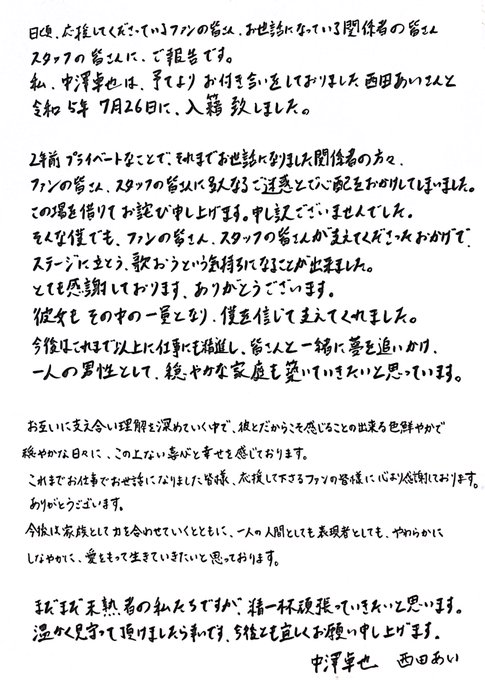 日頃、応援してくださっているファンの皆さん、お世話になっている関係者の皆さん
スタッフの皆さんに、ご報告です。
私、中澤卓也は、予てよりお付き合いをしておりました西田あいさんと
令和5年7月26日に、入籍致しました。
2年前プライベートなことで、それまでお世話になりました関係者の方々、
ファンの皆さん、スタッフの皆さんに多大なるご迷惑とご心配をおかけしてしまいました。
この場を借りてお詫び申し上げます。申し訳ございませんでした。
そんな僕でも、ファンの皆さん、スタッフの皆さんが支えてくださったおかげで、
ステージに立とう、歌おうという気持ちになることが出来ました。
とても感謝しております、ありがとうございます。
彼女も その中の一員となり、僕を信じて支えてくれました。
今後はこれまで以上に仕事にも精進し、皆さんと一緒に夢を追いかけ、
一人の男性として、穏やかな家庭も築いていきたいと思っています。
お互いに支え合い理解を深めていく中で、彼とだからこそ感じることの出来る色鮮やかで
穏やかな日々に、この上ない喜びと幸せを感じております。
これまでお仕事でお世話になりました皆様、応援して下さるファンの皆様に心より感謝しております。
ありがとうございます。
今後は家族として力を合わせていくとともに、一人の人間としても表現者としても、やわらかに
しなやかに、愛をもって生きていきたいと思っております。
まだまだ未熟者の私たちですが、精一杯頑張っていきたいと思います。
温かく見守って頂けましたら幸いです、今後とも宜しくお願い申し上げます。
中澤卓也 西田あい